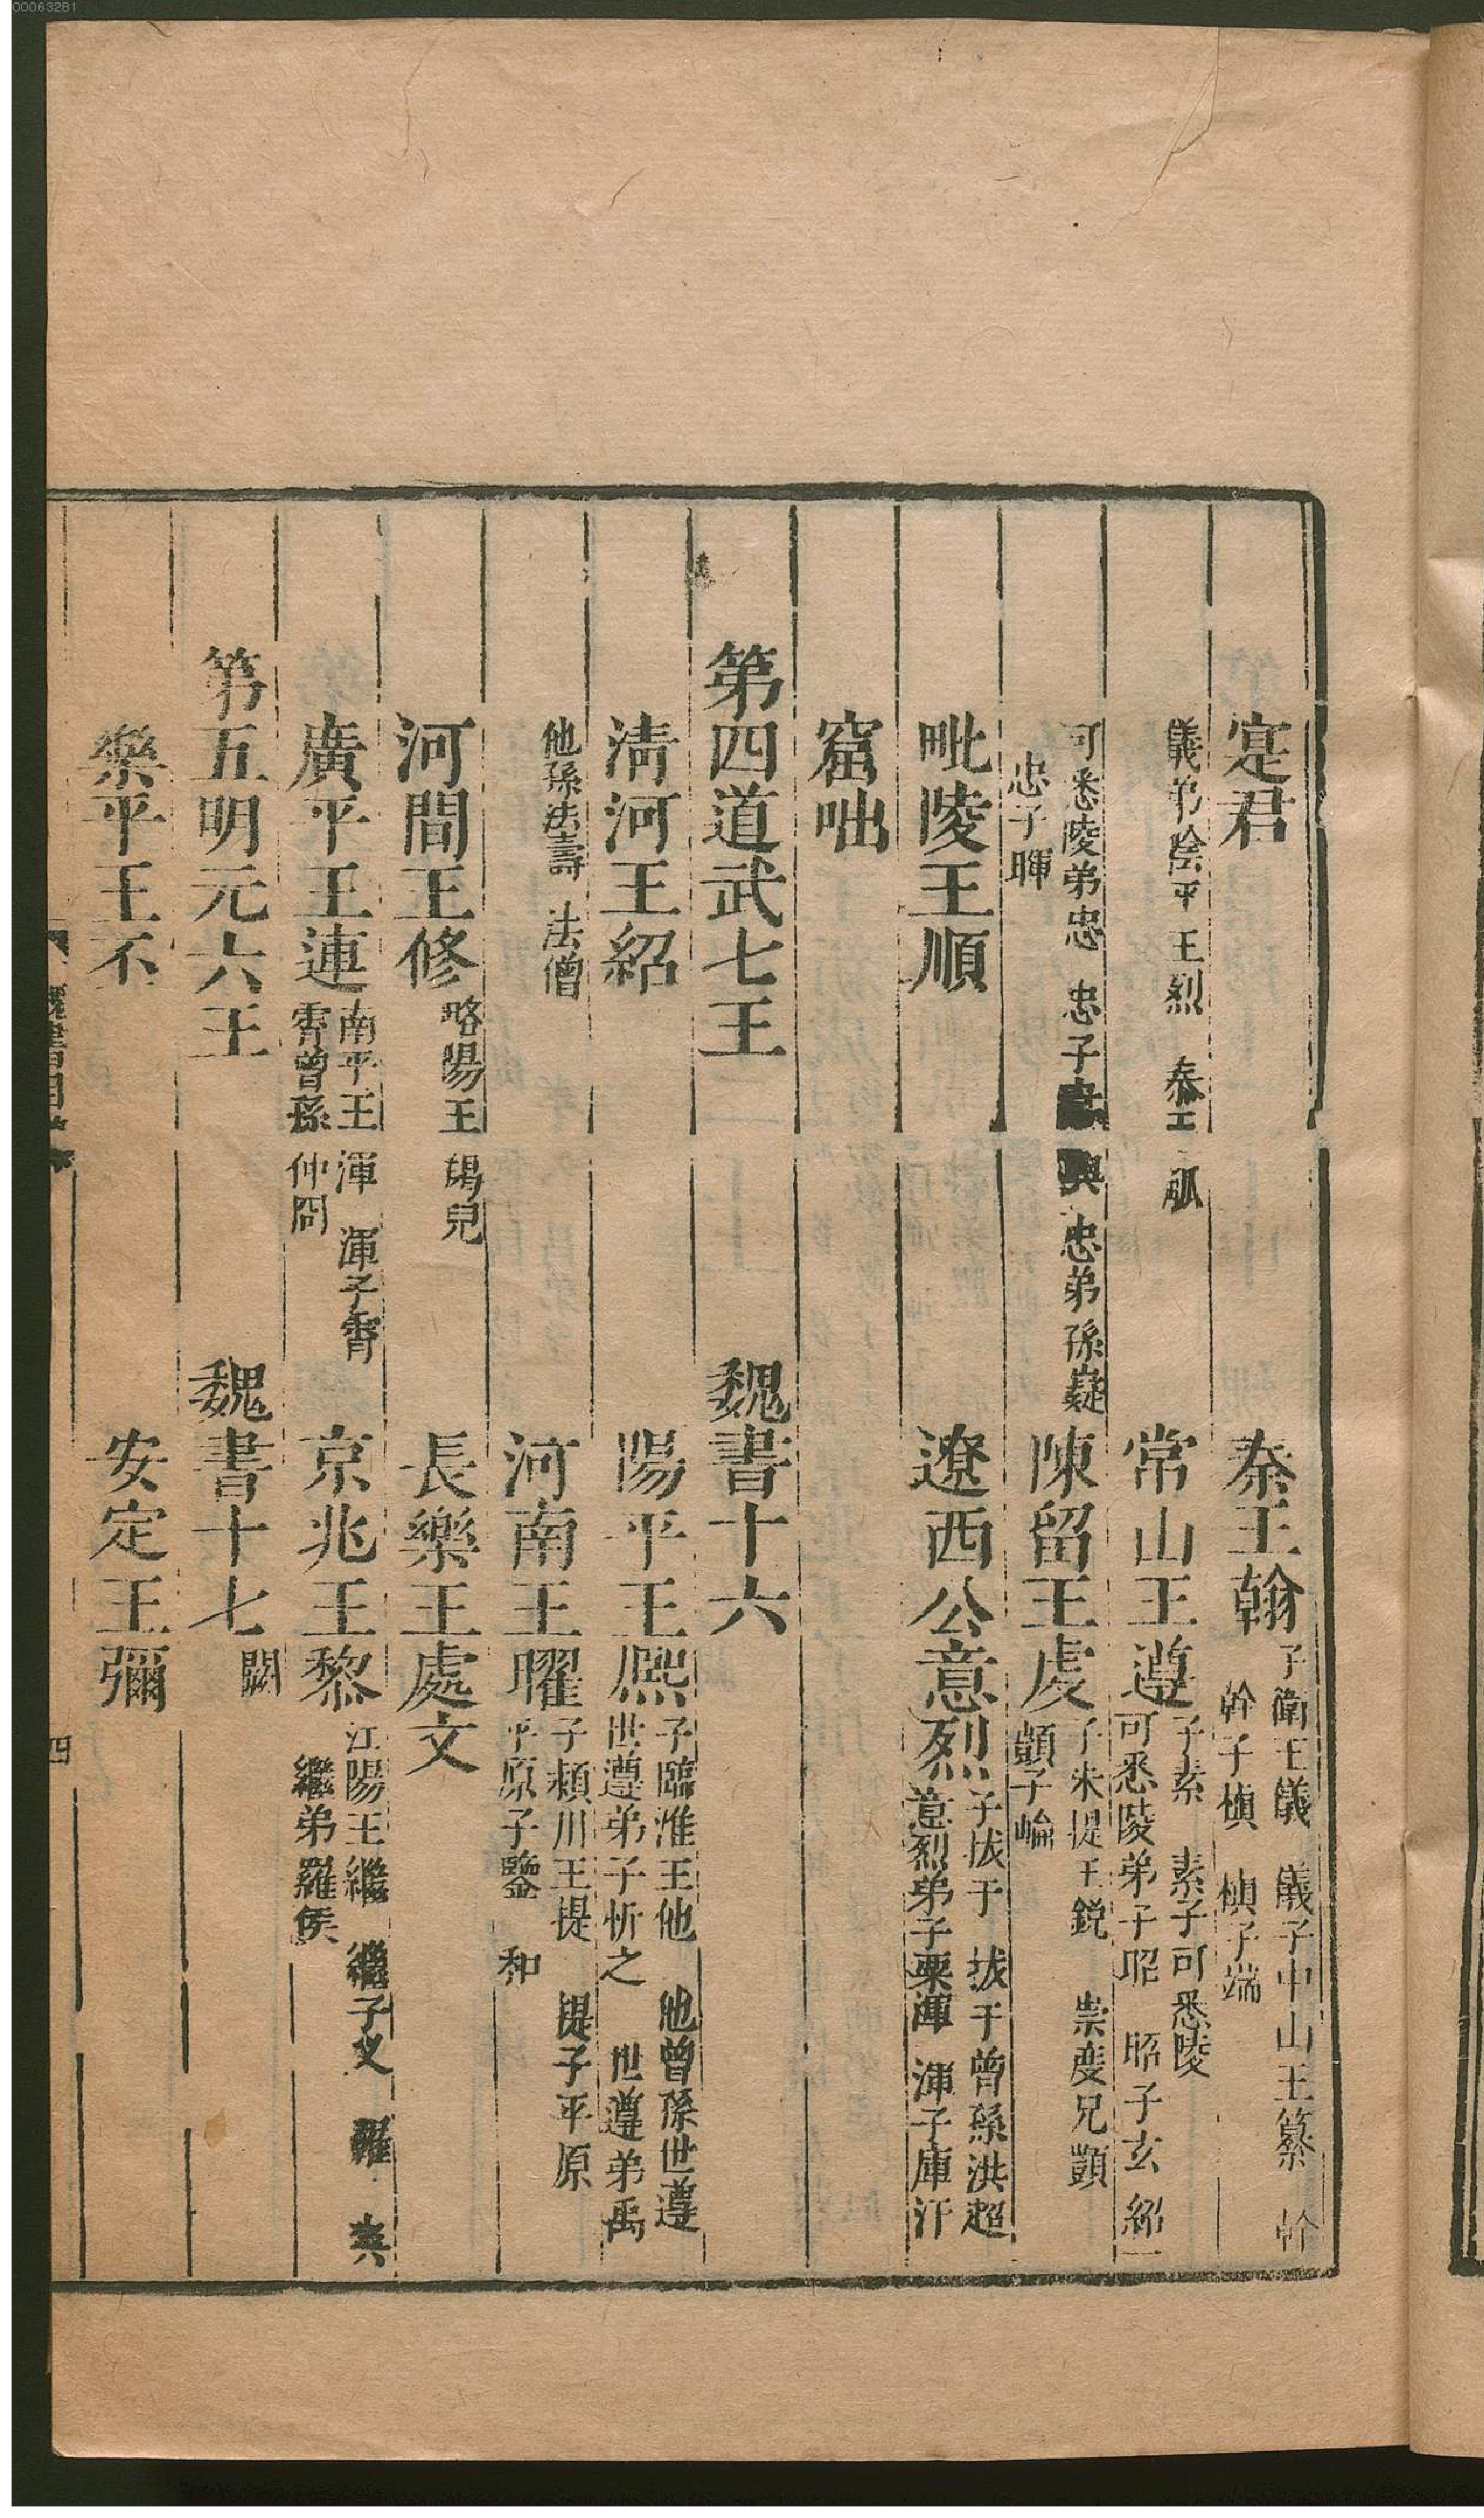 00063281
寔君　秦王翰　子衛王儀　儀子中山王纂　幹　幹子楨　楨子端
儀弟陰平王烈　秦王觚　常山王遵　子素　素子可悉陵　可悉陵弟子昭　昭子玄　紹
可悉陵弟忠　忠子　忠弟孫嶷　忠子暉　陳留王虔　子朱提王銳　崇虔兄顗　顗子崘
毗陵王順　遼西公意烈　子拔干　拔干曾孫洪超　意烈弟子粟渾　渾子庫汗
窟咄
第四道武七王　魏書十六
淸河王紹　陽平王熙　子臨淮王他　他曾孫世遵　世遵弟子忻之　世遵弟禹
他孫法壽　法僧　河南王曜　子潁川王提　提子平原　平原子鑒　和
河間王修　略陽王羯兒　長樂王處文
廣平王連　南平王渾　渾子霄　霄曾孫仲冏　京兆王黎　江陽王繼　繼子乂　羅　爽　繼弟羅侯
第五明元六王　魏書十七　闕
樂平王丕　安定王彌
四